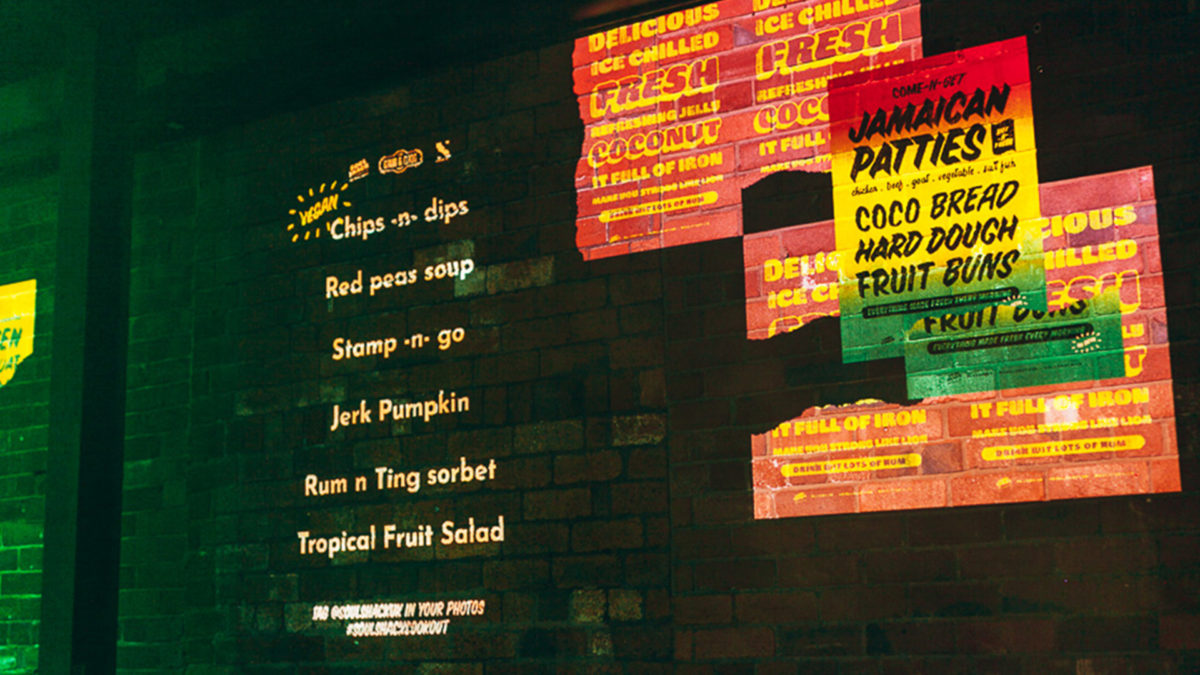 VEGAN
Chips -n- dips
Red peas soup
Stamp -n- go
Jerk Pumpkin
Rum n Ting sorbet
Tropical Fruit Salad
TAG @SOULSHACKUK IN YOUR PHOTOS
#SOULSHACKLOOKOUT
DELICIOUS
ICE CHILLED
FRESH
REFRESHING JELLY
COCONUT
IT FULL OF IRON
MAKE YOU STRONG LIKE LION
DRINK WIT LOTS OF RUM
ICE CHILLED
FRESH
COME-N-GET
JAMAICAN
PATTIES
chicken . beef . goat . vegetable . salt fish
COCO BREAD
HARD DOUGH
FRUIT BUNS
EVERYTHING MADE FRESH EVERY MORNING
FRUIT BUNS
EVERYTHING MADE FRESH EVERY MORNING
IT FULL OF IRON
MAKE YOU STRONG LIKE LION
DRINK WIT LOTS OF RUM
IT FULL OF IRON
MAKE YOU STRONG LIKE LION
DRINK WIT LOTS OF RUM